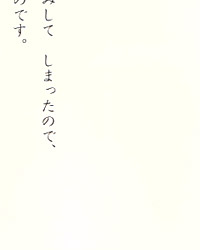 みして　しまったので、
のです。